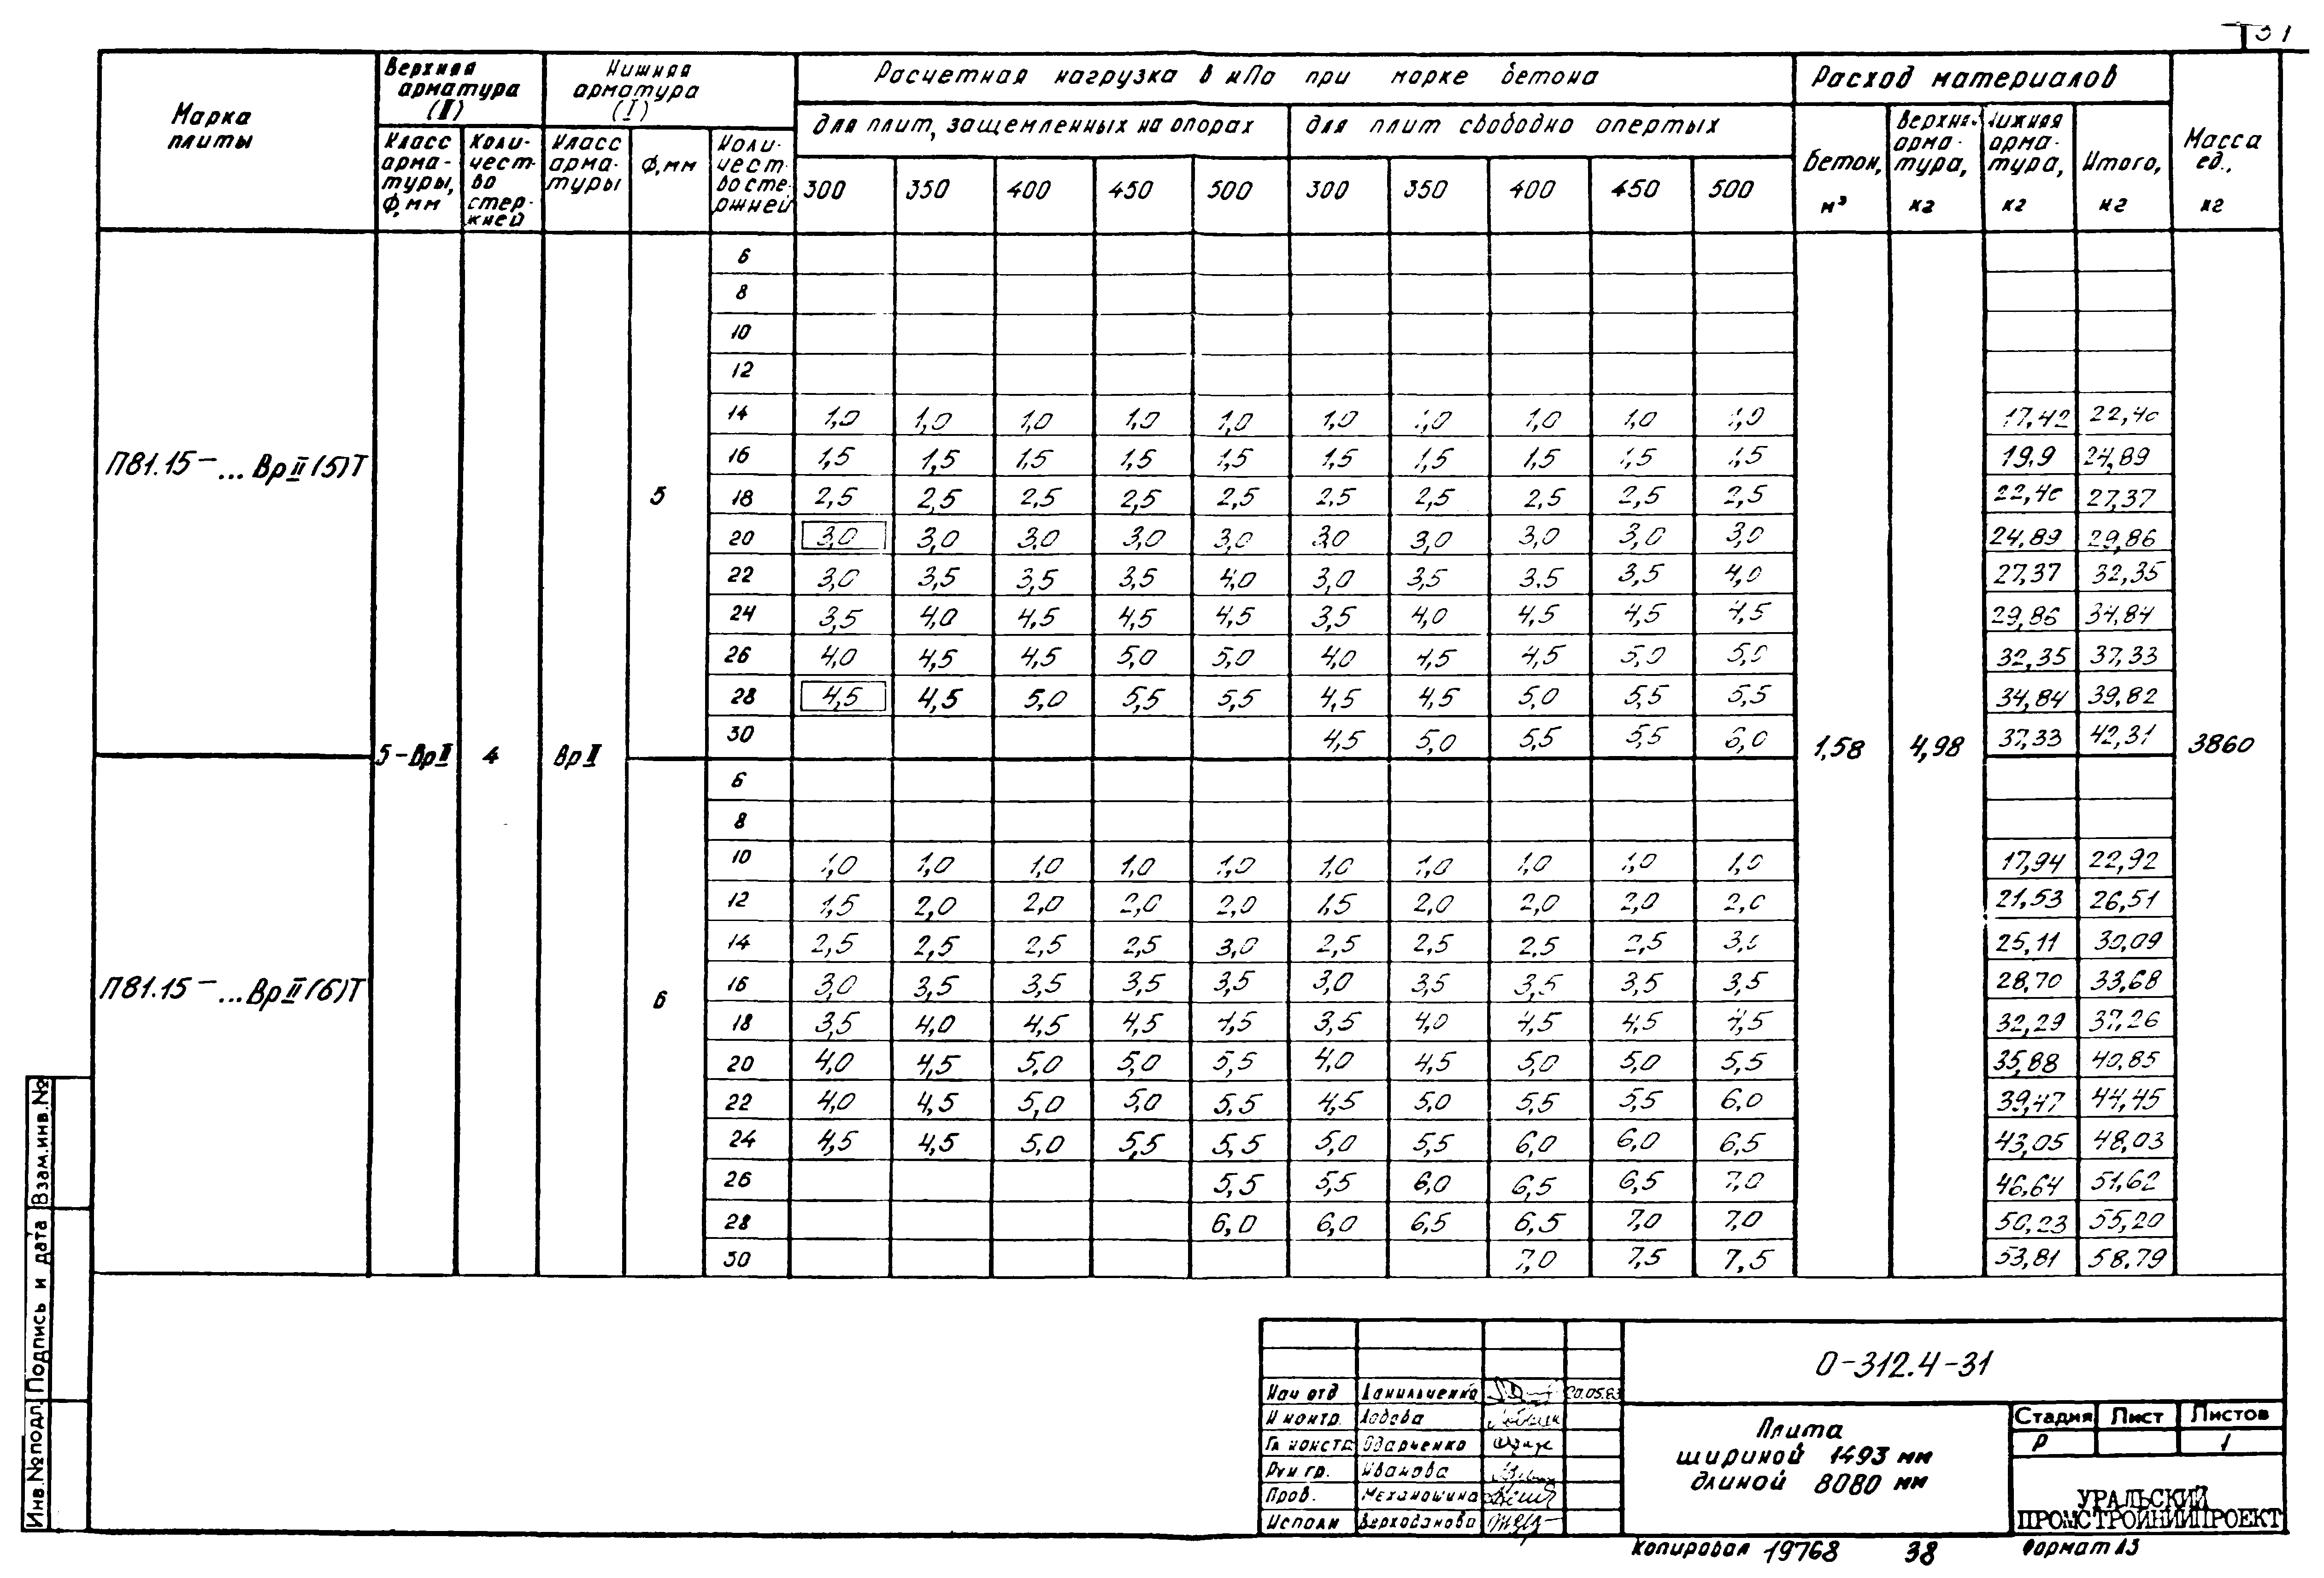 31
Марка плиты
Верхняя арматура (II)
Нижняя арматура (I)
Расчетная нагрузка в кПа при марке бетона
Расход материалов
Масса ед., кг
для плит, защемленных на опорах
для плит свободно опертых
Класс арма-туры, Ф,мм
Коли-чест-во стер-жней
Класс арма-туры
Ф,мм
Коли-чест-во сте-ржней
300 350 400 450 500 300 350 400 450 500
Бетон, м³
Верхняя арма-тура, кг
Нижняя арма-тура, кг
Итого, кг
П81.15-...ВрII(5)Т
5-ВрII 4 ВрII 5
1,58 4,98 3860
6
8
10
12
14 1,0 1,0 1,0 1,0 1,0 1,0 1,0 1,0 1,0 1,0 17,42 22,40
16 1,5 1,5 1,5 1,5 1,5 1,5 1,5 1,5 1,5 1,5 19,9 24,89
18 2,5 2,5 2,5 2,5 2,5 2,5 2,5 2,5 2,5 2,5 22,40 27,37
20 3,0 3,0 3,0 3,0 3,0 3,0 3,0 3,0 3,0 3,0 24,89 29,86
22 3,0 3,5 3,5 3,5 4,0 3,0 3,5 3,5 3,5 4,0 27,37 32,35
24 3,5 4,0 4,5 4,5 4,5 3,5 4,0 4,5 4,5 4,5 29,86 34,84
26 4,0 4,5 4,5 5,0 5,0 4,0 4,5 4,5 5,0 5,0 32,35 37,33
28 4,5 4,5 5,0 5,5 5,5 4,5 4,5 5,0 5,5 5,5 34,84 39,82
30 4,5 5,0 5,5 5,5 6,0 37,33 42,31
П81.15-...ВрII(6)Т
6
6
8
10 1,0 1,0 1,0 1,0 1,0 1,0 1,0 1,0 1,0 1,0 17,94 22,92
12 1,5 2,0 2,0 2,0 2,0 1,5 2,0 2,0 2,0 2,0 21,53 26,51
14 2,5 2,5 2,5 2,5 3,0 2,5 2,5 2,5 2,5 3,0 25,11 30,09
16 3,0 3,5 3,5 3,5 3,5 3,0 3,5 3,5 3,5 3,5 28,70 33,68
18 3,5 4,0 4,5 4,5 4,5 3,5 4,0 4,5 4,5 4,5 32,29 37,26
20 4,0 4,5 5,0 5,0 5,5 4,0 4,5 5,0 5,0 5,5 35,88 40,85
22 4,0 4,5 5,0 5,0 5,5 4,5 5,0 5,5 5,5 6,0 39,47 44,45
24 4,5 4,5 5,0 5,5 5,5 5,0 5,5 6,0 6,0 6,5 43,05 48,03
26 5,5 5,5 6,0 6,5 6,5 7,0 46,64 51,62
28 6,0 6,0 6,5 6,5 7,0 7,0 50,23 55,20
30 7,0 7,5 7,5 53,81 58,79
Инв.№подл. Подпись и дата Взам.инв.№
О-312.4-31
Нач отд Данильченко 20.05.83
Н контр. Лобова
Гл констр Одарченко
Рук гр. Иванова
Пров. Механошина
Исполн Верходанова
Плита
шириной 1493 мм
длиной 8080 мм
Стадия Лист Листов
Р 1
УРАЛЬСКИЙ
ПРОМСТРОЙНИИПРОЕКТ
Копировал 19768 38 Формат А3